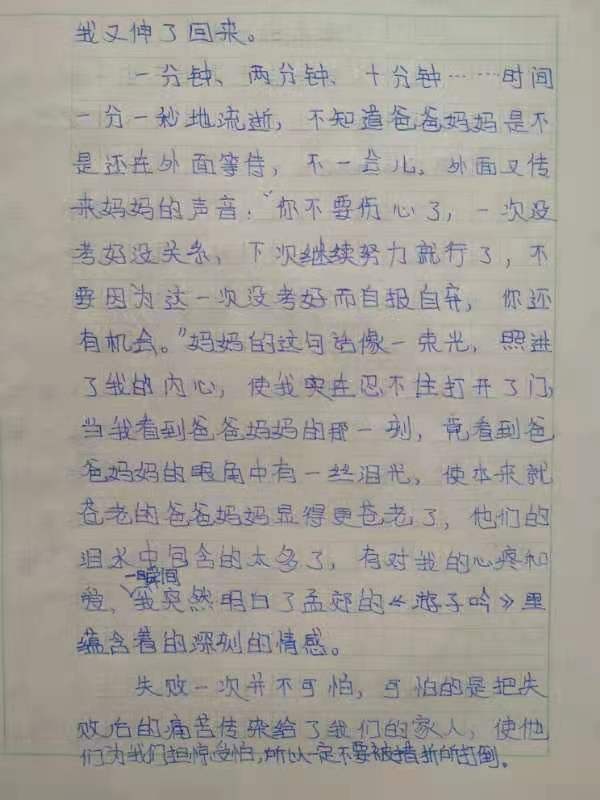 我又伸了回来。
一分钟、两分钟、十分钟……时间
一分一秒地流逝，不知道爸爸妈妈是不
是还在外面等待，不一会儿，外面又传
来妈妈的声音：“你不要伤心了，一次没
考好没关系，下次继续努力就行了，不
要因为这一次没考好而自报自弃，你还
有机会。”妈妈的这句话像一束光，照进
了我的内心，使我实在忍不住打开了门，
当我看到爸爸妈妈的那一刻，竟看到爸
爸妈妈的眼角中有一丝泪光，使本来就
苍老的爸爸妈妈显得更苍老了，他们的
泪水中包含的太多了，有对我的心疼和
爱，一瞬间我突然明白了孟郊的《游子吟》里
蕴含着的深刻的情感。
失败一次并不可怕，可怕的是把失
败后的痛苦传染给了我们的家人，使他
们为我们担惊受怕，所以一定不要被挫折所打倒。